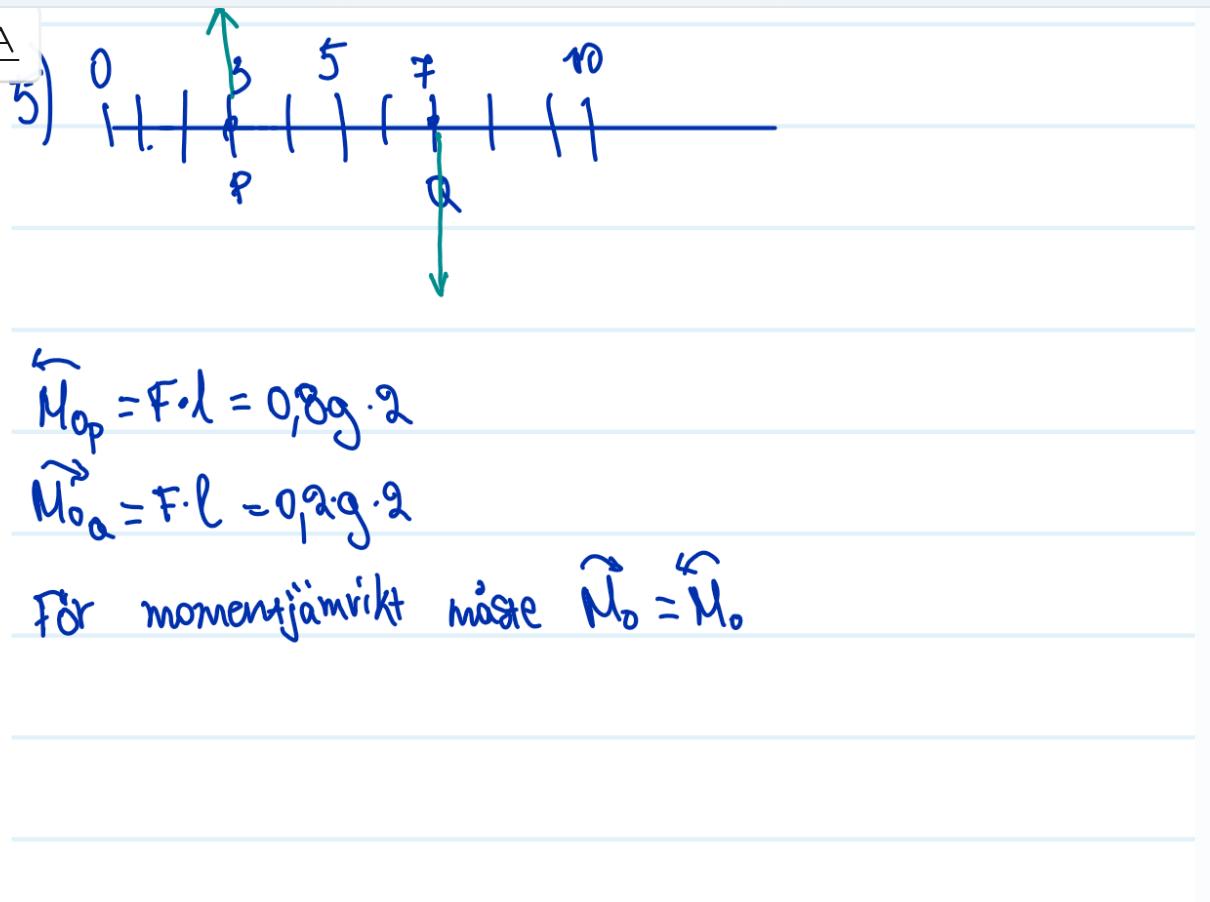 A
5) 0 3 5 7 10
P Q
M₀ₚ = F·l = 0,8g·2
M₀Q = F·l = 0,2·g·2
För momentjämvikt måste M₀ = M₀